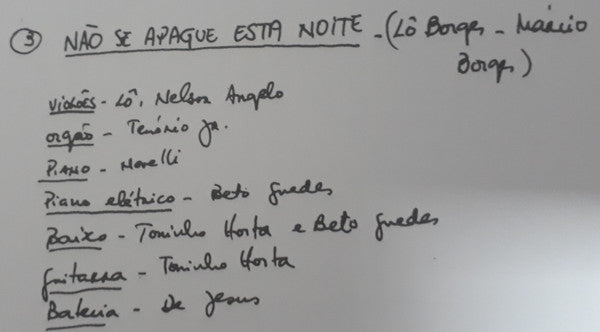 ③ NÃO SE APAGUE ESTA NOITE - (Lô Borges - Márcio
Borges)
Violões - Lô, Nelson Angelo
orgão - Tenório Jr.
Piano - Novelli
Piano elétrico - Beto Guedes
Baixo - Toninho Horta e Beto Guedes
guitarra - Toninho Horta
Bateria - De Jesus